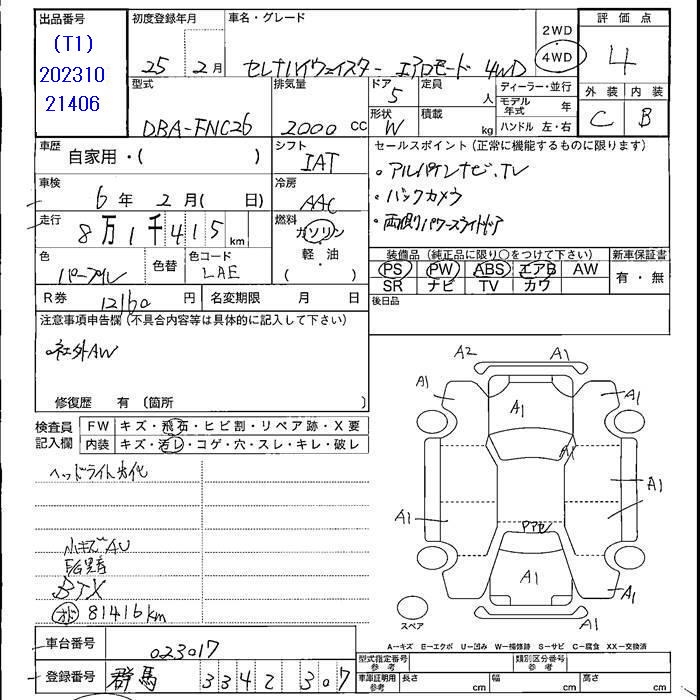 出品番号 初度登録年月 車名・グレード 2WD 評価点
(T1)
202310
21406
25 2月 セレナハイウェイスター エアロモード 4WD 4WD 4
型式 排気量 ドア 定員 ディーラー・並行 外装 内装
5 人 モデル年式 年 C B
DBA-FNC26 2000 cc 形状 積載 ハンドル 左・右
W kg
車歴 シフト セールスポイント(正常に機能するものに限ります)
自家用・( ) IAT
・アルパインナビ、TV
車検 冷房
6年 2月( 日) AAC ・バックカメラ
走行 燃料
8万1千415 km ガソリン ・両側パワースライドドア
軽・油
( )
色 色替 色コード 装備品(純正品に限り○をつけて下さい) 新車保証書
パープル LAE PS PW ABS エアB AW 有・無
SR ナビ TV カワ
R券 12160 円 名変期限 月 日 後日品
注意事項申告欄(不具合内容等は具体的に記入して下さい)
・社外AW
修復歴 有 〔箇所 〕
検査員記入欄 FW キズ・飛石・ヒビ割・リペア跡・X要
内装 キズ・汚レ・コゲ・穴・スレ・キレ・破レ
小キズAU
BTX
81416km
車台番号 023017
登録番号 群馬 334 2 307
A2 A1
A1 A1 A1
A1
A1
A1
A1
A1
A1
スペア
A-キズ E-エクボ U-凹み W-補修跡 S-サビ C-腐食 XX-交換済
型式指定番号 参考 類別区分番号 参考
車庫証明用 参考 長さ cm 幅 cm 高さ cm